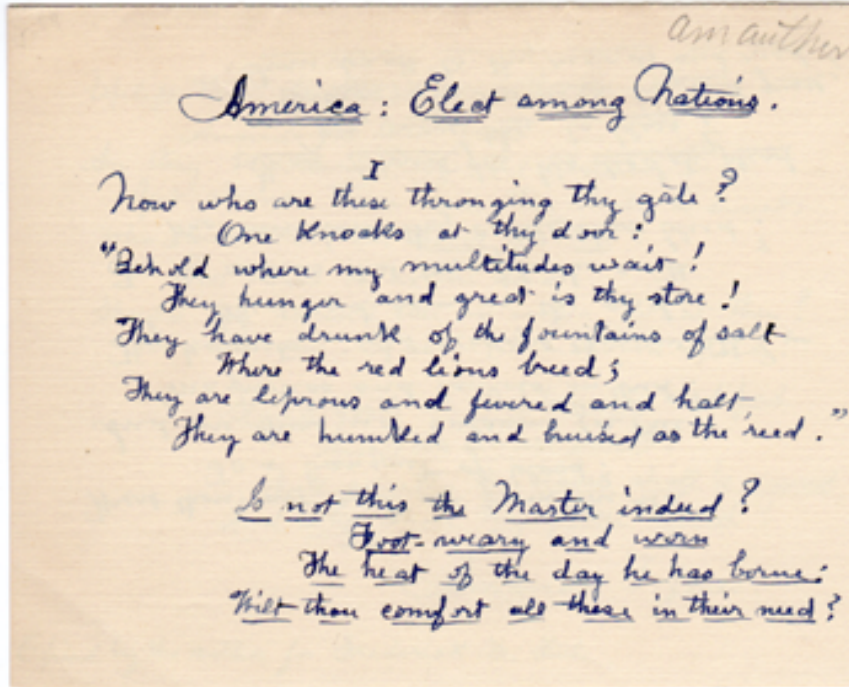 Am author
America: Elect among Nations.
I
Now who are these thronging thy gate?
One knocks at thy door:
"Behold where my multitudes wait!
They hunger and great is thy store!
They have drunk of the fountains of salt
Where the red lions breed;
They are leprous and fevered and halt,
They are humbled and bruised as the reed."
Is not this the Master indeed?
Foot-weary and worn
The heat of the day he has borne:
Wilt thou comfort all these in their need?